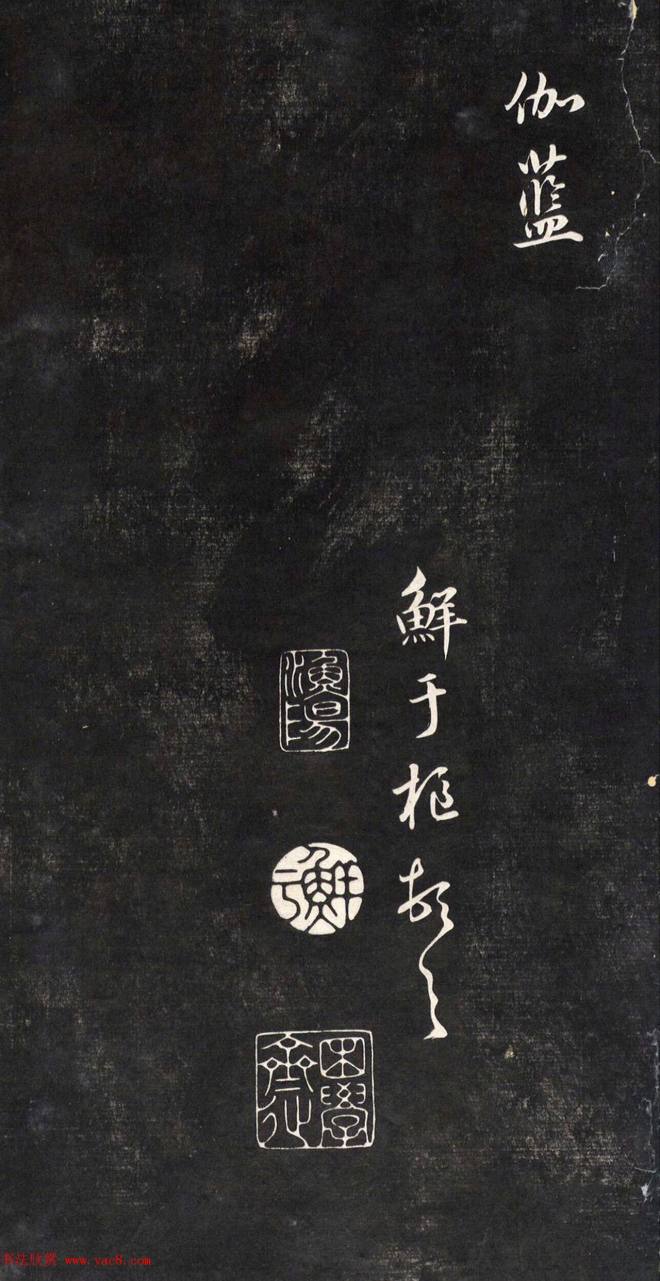 伽藍
鮮于枢
漁陽
鮮于
困學齋
书法欣赏 www.yac8.com